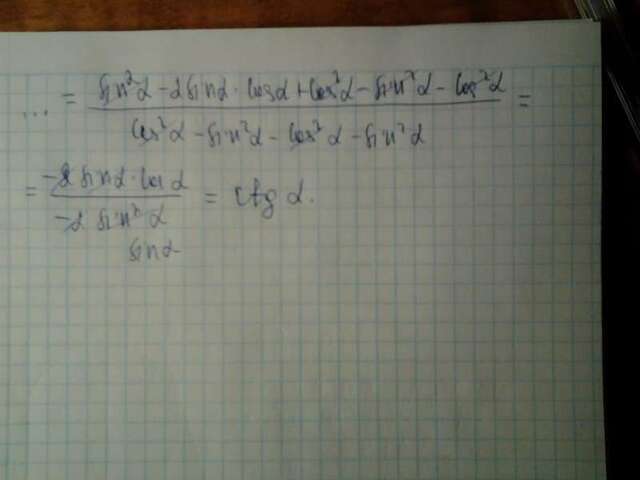 ... = (sin²α - 2sinα·cosα + cos²α - sin²α - cos²α) / (cos²α - sin²α - cos²α - sin²α) =
= (-2 sinα·cosα) / (-2 sin²α) = ctg α.
sinα